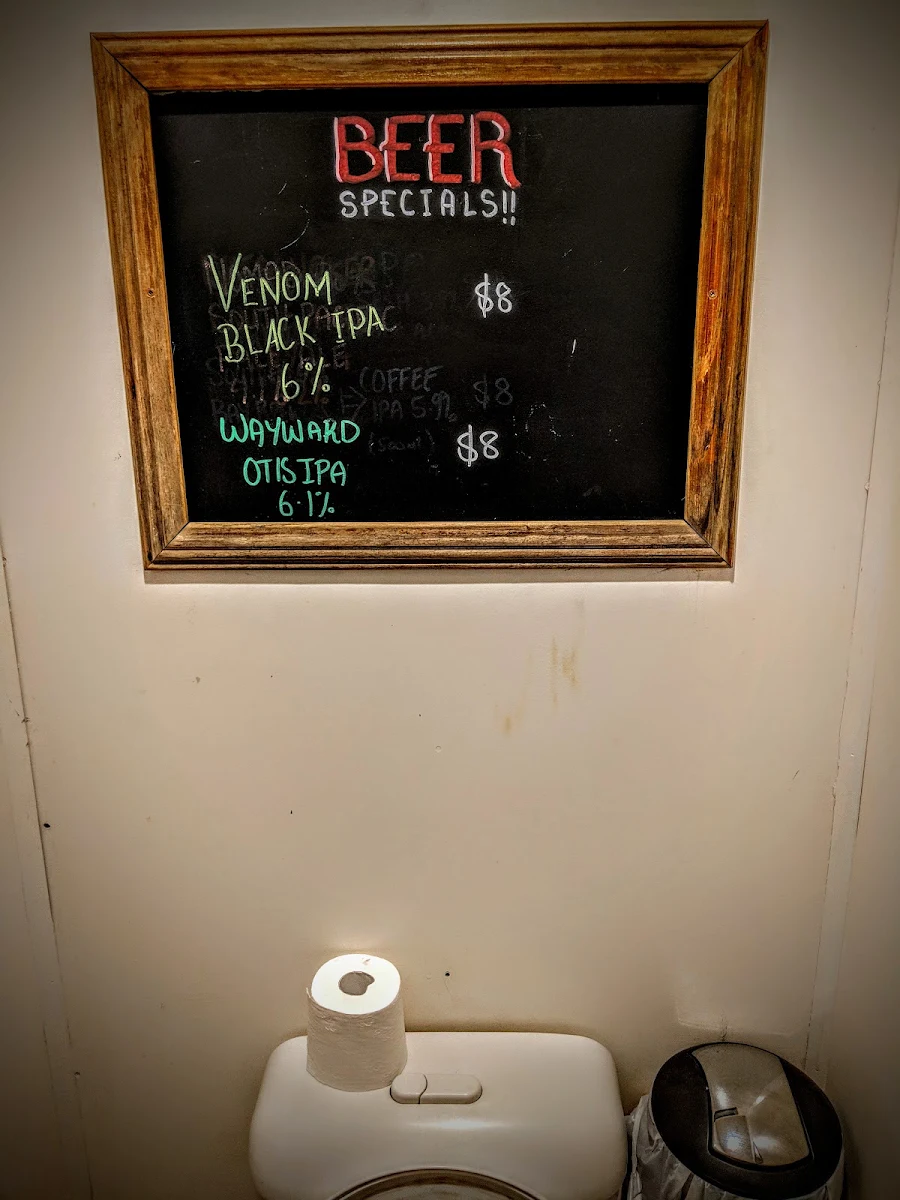 BEER
SPECIALS!!
VENOM $8
BLACK IPA
6%
COFFEE $8
IPA 5.9%
WAYWARD $8
OTIS IPA
6.1%